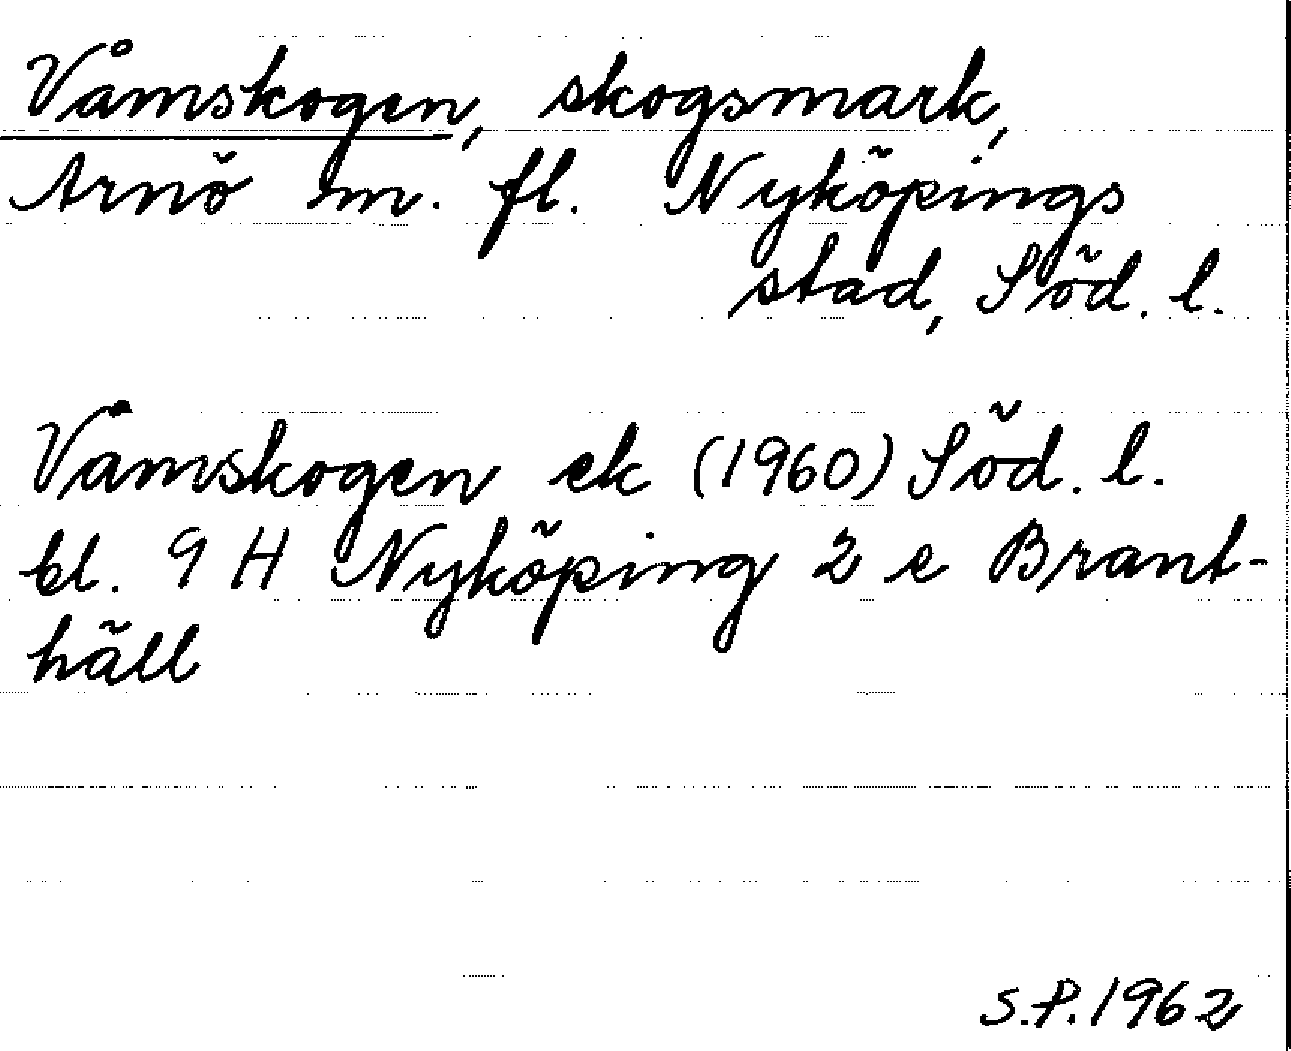 Våmskogen, skogsmark,
Arnö m. fl. Nyköpings
stad, Söd. l.
Våmskogen ek (1960) Söd. l.
bl. 9 H Nyköping 2 e Brant-
häll
S.P. 1962